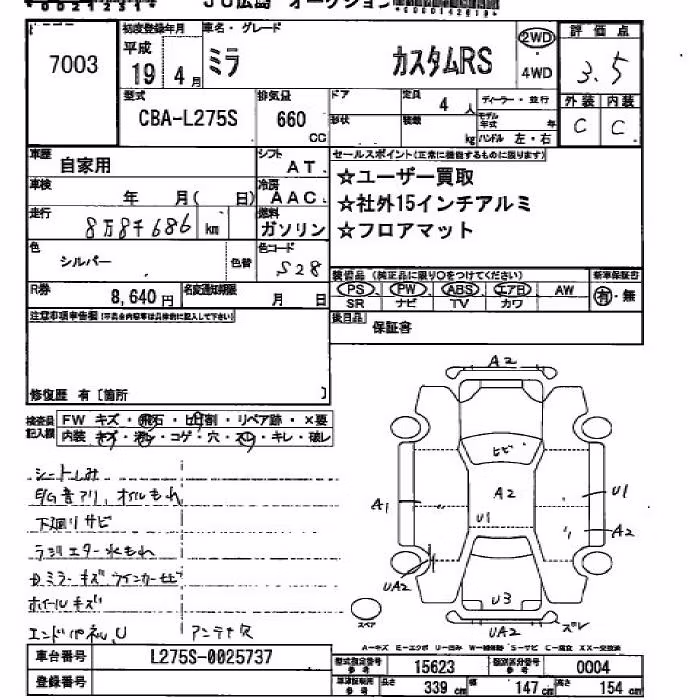 JU広島 オークション
7003
初度登録年月
平成
19年4月
車名・グレード
ミラ カスタムRS
2WD
・
4WD
評価点
3.5
型式
CBA-L275S
排気量
660
cc
ドア
定員 4 人
形状
積載 kg
ディーラー・並行
モデル年式 年
ハンドル 左・右
外装 内装
C C
車歴
自家用
シフト
AT
車検
年 月( 日)
冷房
AAC
走行
8万8千686 km
燃料
ガソリン
色
シルバー
色替
色コード
S28
R券
8,640円
名変通知期限
月 日
セールスポイント(正常に機能するものに限ります)
☆ユーザー買取
☆社外15インチアルミ
☆フロアマット
装備品(純正品に限り○をつけてください)
新車保証書
PS PW ABS エアB AW
SR ナビ TV カワ
有・無
後日品
保証書
注意事項申告欄(不具合内容等は具体的に記入して下さい)
修復歴 有〔箇所 〕
検査員
記入欄
FW キズ・飛石・ヒビ割・リペア跡・×要
内装 キズ・汚レ・コゲ・穴・スレ・キレ・破レ
シートしみ
E/G音アリ、オイルもれ
下廻りサビ
ラジエター水もれ
ミラーキズ ウインカーヒビ
ホイールキズ
エンドパネルU アンテナ欠
A2
ヒビ
A2
U1
A1
U1
A2
UA2
U3
UA2
ズレ
スペア
A－キズ E－エクボ U－凹み W－補修跡 S－サビ C－腐食 XX－交換済
車台番号
L275S-0025737
登録番号
型式指定番号
参考
15623
類別区分番号
参考
0004
車検証制限
参考
長さ 339 cm
幅 147 cm
高さ 154 cm